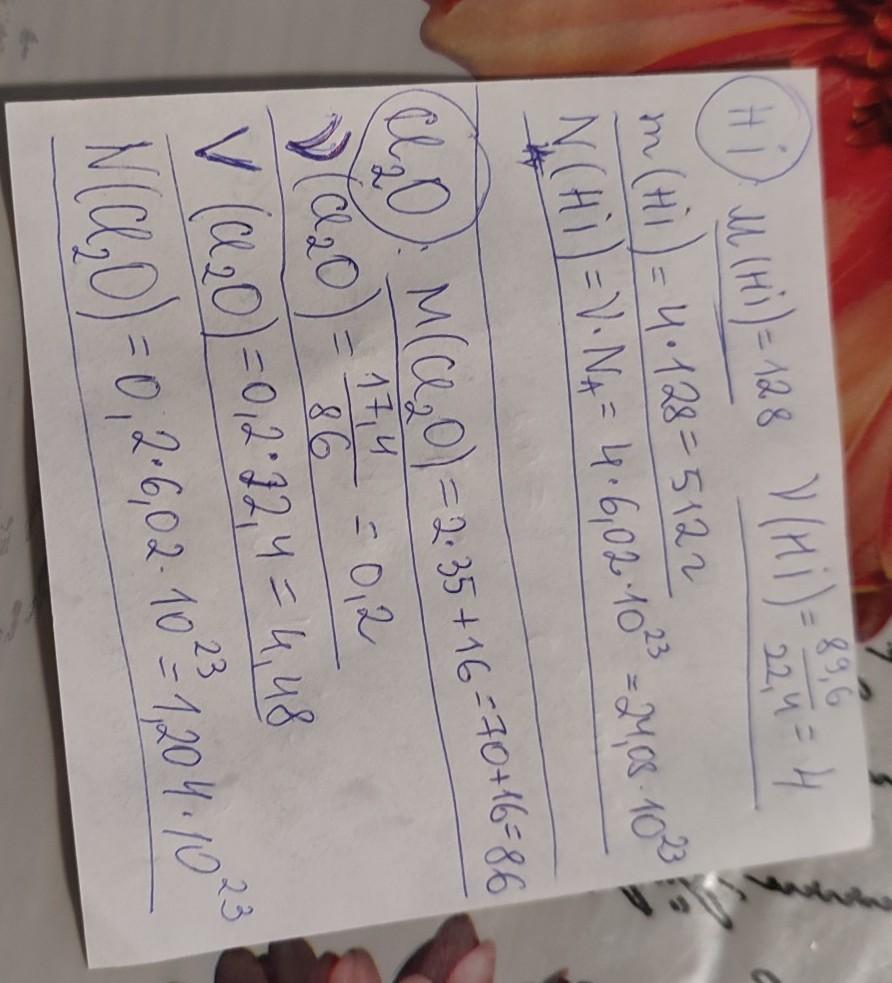 Hi. M(Hi)=128 ν(Hi)=89,6/22,4=4
m(Hi)=4·128=512г
N(Hi)=ν·Nₐ=4·6,02·10²³=24,08·10²³
Cl₂O. M(Cl₂O)=2·35+16=70+16=86
ν(Cl₂O)=17,4/86=0,2
V(Cl₂O)=0,2·22,4=4,48
N(Cl₂O)=0,2·6,02·10²³=1,204·10²³